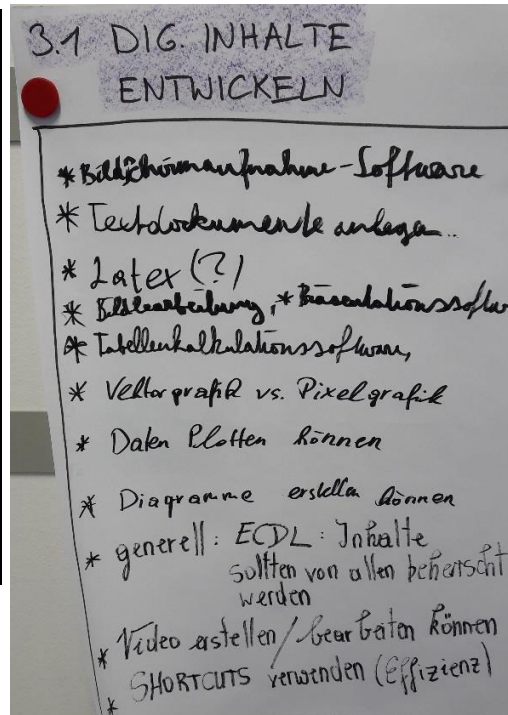 3.1 DIG. INHALTE
ENTWICKELN
* Bildschirmaufnahme-Software
* Textdokumente anlegen..
* Latex (?)
* Bildbearbeitung, * Präsentationssoftw
* Tabellenkalkulationssoftware,
* Vektorgrafik vs. Pixelgrafik
* Daten Plotten können
* Diagramme erstellen können
* generell: ECDL: Inhalte
sollten von allen beherrscht
werden
* Video erstellen/bearbeiten können
* SHORTCUTS verwenden (Effizienz)
*